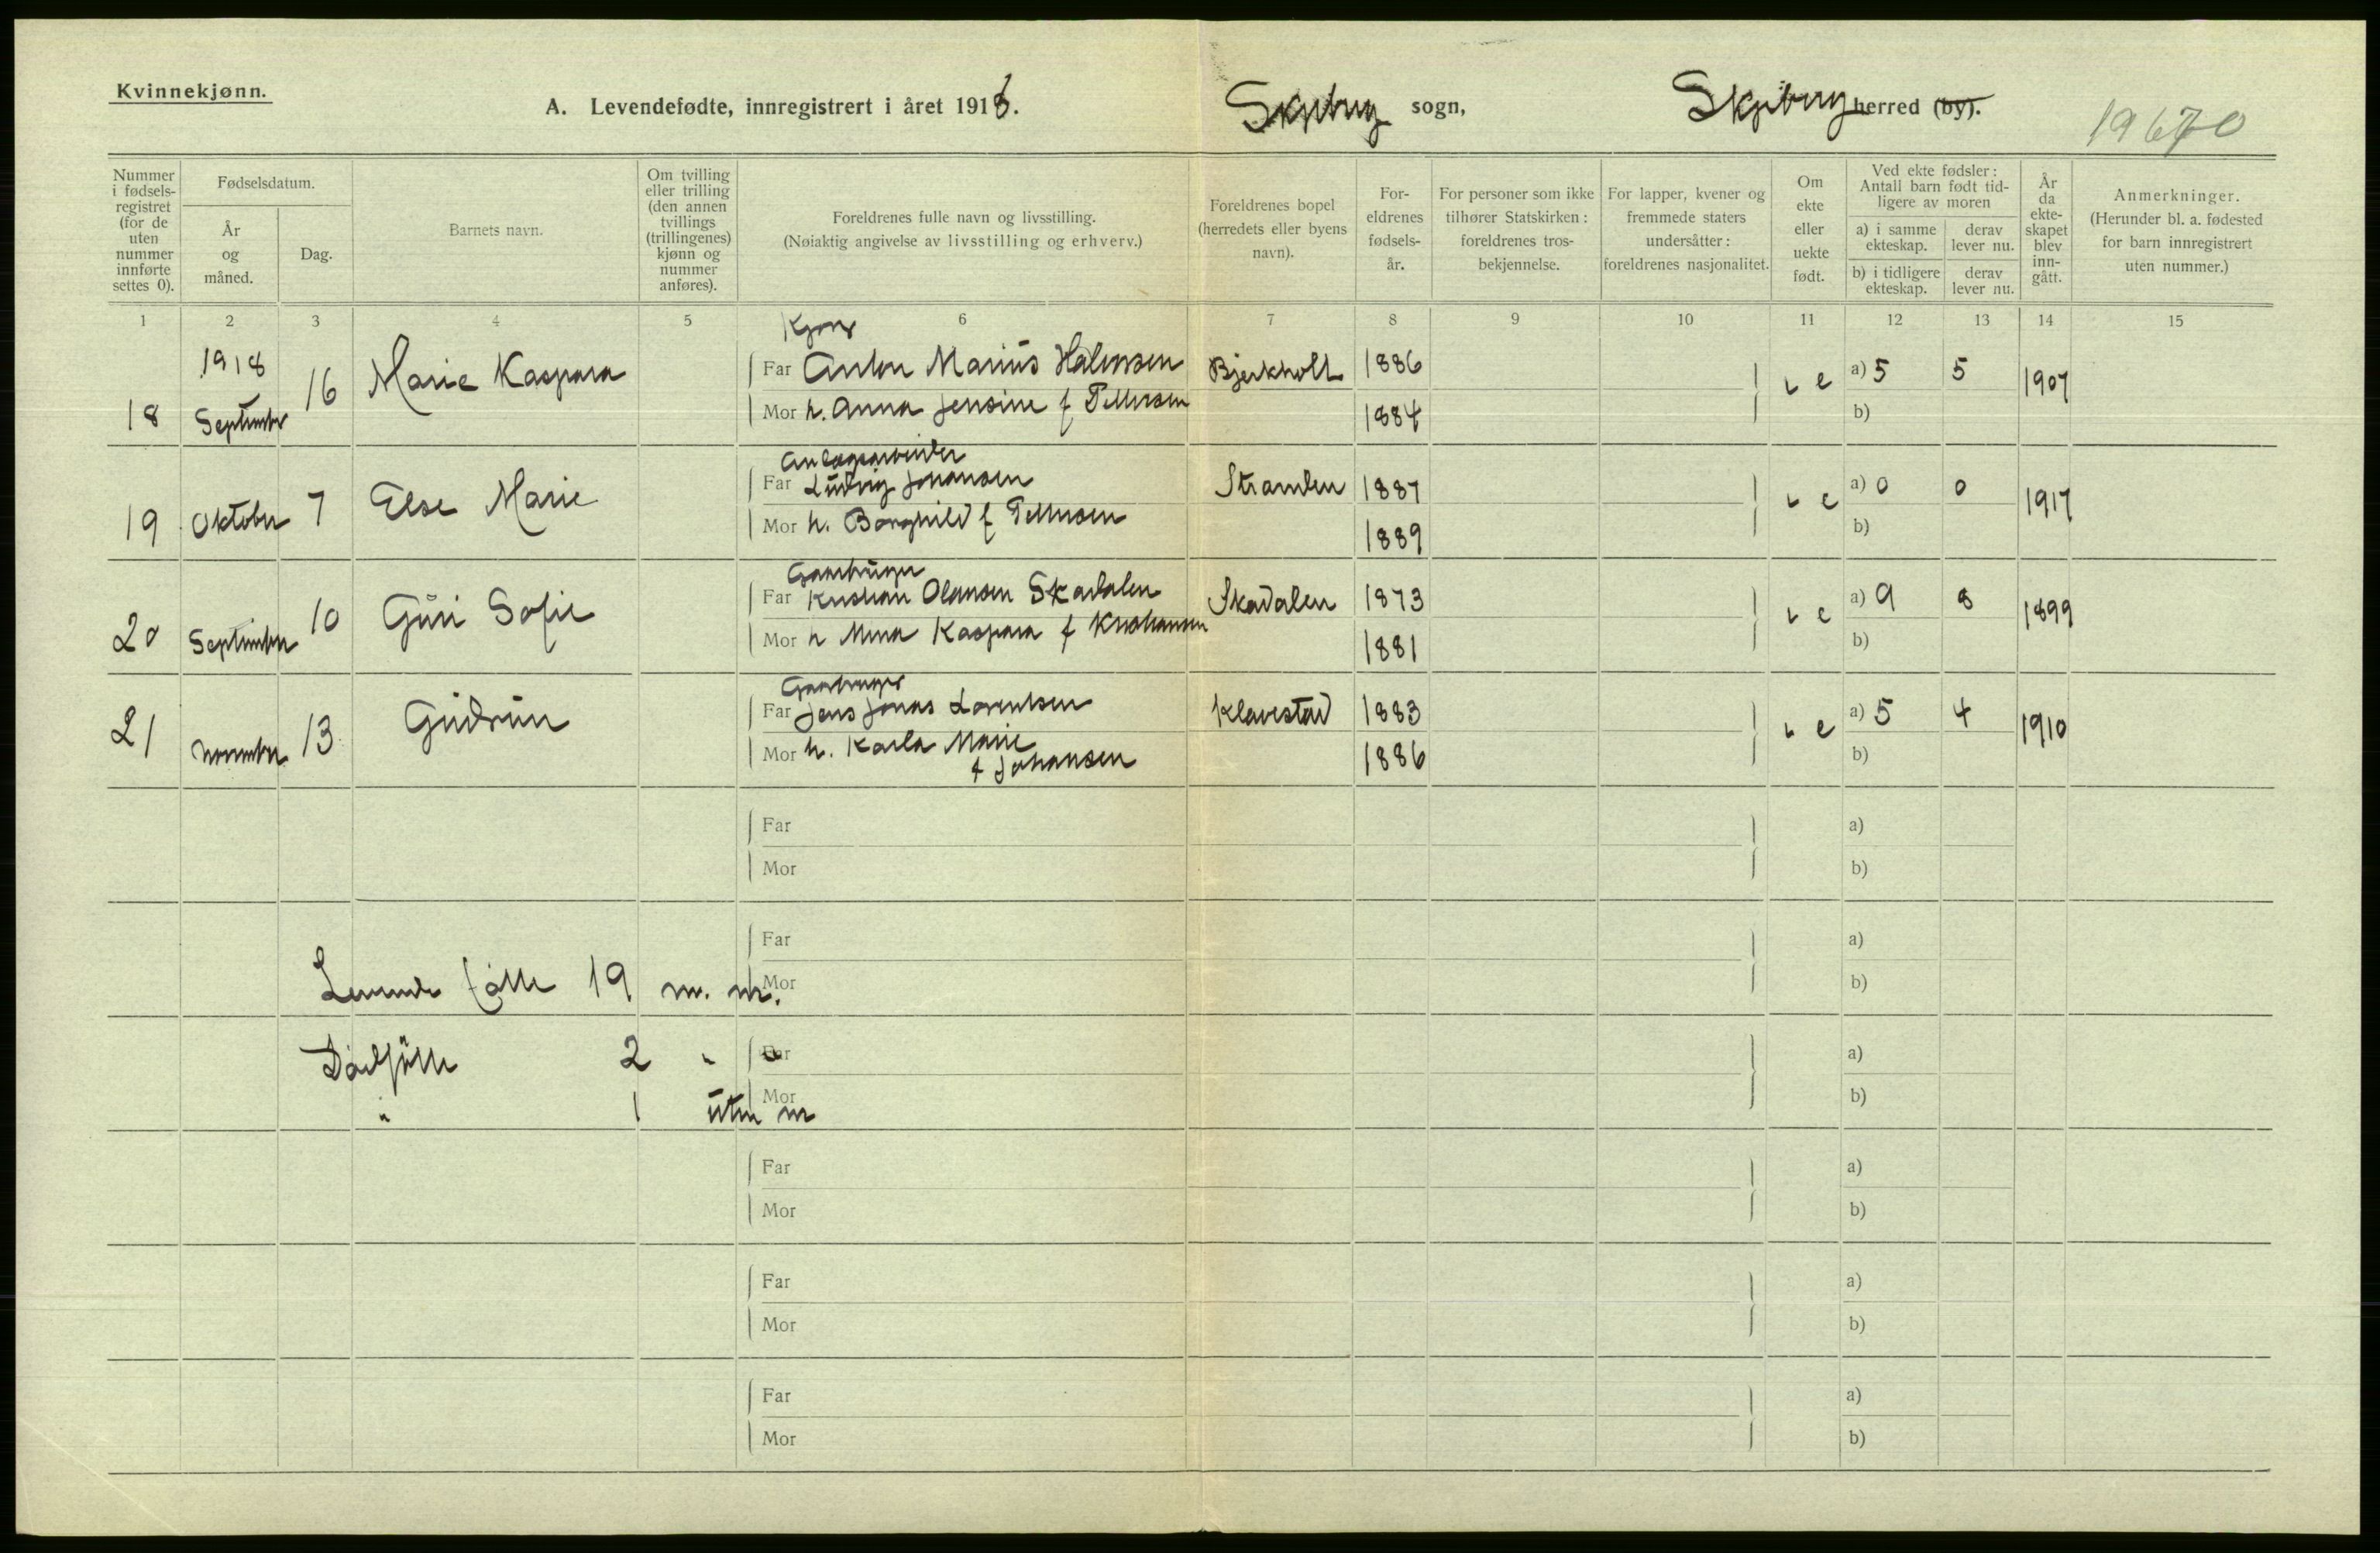 Kvinnekjønn.
A. Levendefødte, innregistrert i året 1918. Skjeberg sogn, Skjeberg herred (by).
19670
Nummer i fødsels-registret (for de uten nummer innførte settes 0).
Fødselsdatum.
År og måned.
Dag.
Barnets navn.
Om tvilling eller trilling (den annen tvillings (trillingenes) kjønn og nummer anføres).
Foreldrenes fulle navn og livsstilling.
(Nøiaktig angivelse av livsstilling og erhverv.)
Foreldrenes bopel (herredets eller byens navn).
For-eldrenes fødsels-år.
For personer som ikke tilhører Statskirken: foreldrenes tros-bekjennelse.
For lapper, kvener og fremmede staters undersåtter: foreldrenes nasjonalitet.
Om ekte eller uekte født.
Ved ekte fødsler: Antall barn født tid-ligere av moren
a) i samme ekteskap.
derav lever nu.
b) i tidligere ekteskap.
derav lever nu.
År da ekte-skapet blev inn-gått.
Anmerkninger.
(Herunder bl. a. fødested for barn innregistrert uten nummer.)
1 2 3 4 5 6 7 8 9 10 11 12 13 14 15
1918
18 September 16 Marie Kaspara
Far Anton Marius Halvorsen Bjerkholt 1886 e a) 5 5 1907
Mor h. Anna Jensine f Pettersen 1884 b)
Anlegsarbeider
19 Oktober 7 Else Marie
Far Ludvig Johansen Stranden 1887 e a) 0 0 1917
Mor h. Borghild f Pettersen 1889 b)
Gaardbruger
20 September 10 Guri Sofie
Far Kristian Olausen Skavdalen Skavdalen 1873 e a) 9 8 1899
Mor h Mina Kaspara f Kristiansen 1881 b)
Gaardbruger
21 November 13 Gudrun
Far Jens Jonas Lorentsen Klavestad 1883 e a) 5 4 1910
Mor h. Karla Marie
f Johansen 1886 b)
Far a)
Mor b)
Far a)
Levende fötte 19 m. nr. Mor b)
Dödfötte 2 " " Far a)
" 1 uten nr Mor b)
Far a)
Mor b)
Far a)
Mor b)
Far a)
Mor b)